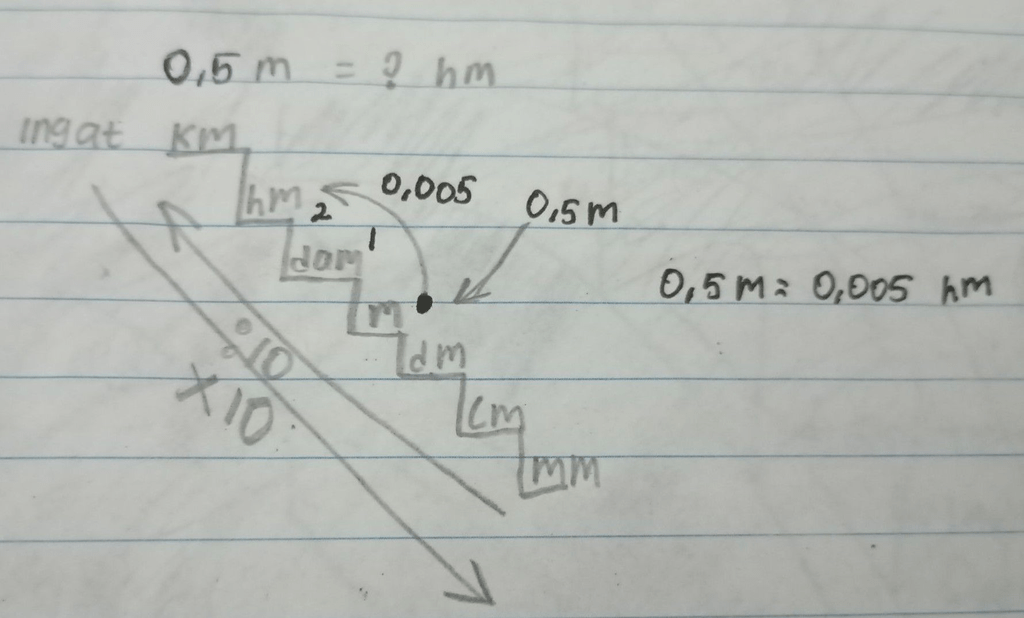 0,5 m = ? hm
ingat km
hm 2 0,005 0,5 m
dam 1
m 0,5 m = 0,005 hm
dm
: 10
cm
x 10
mm